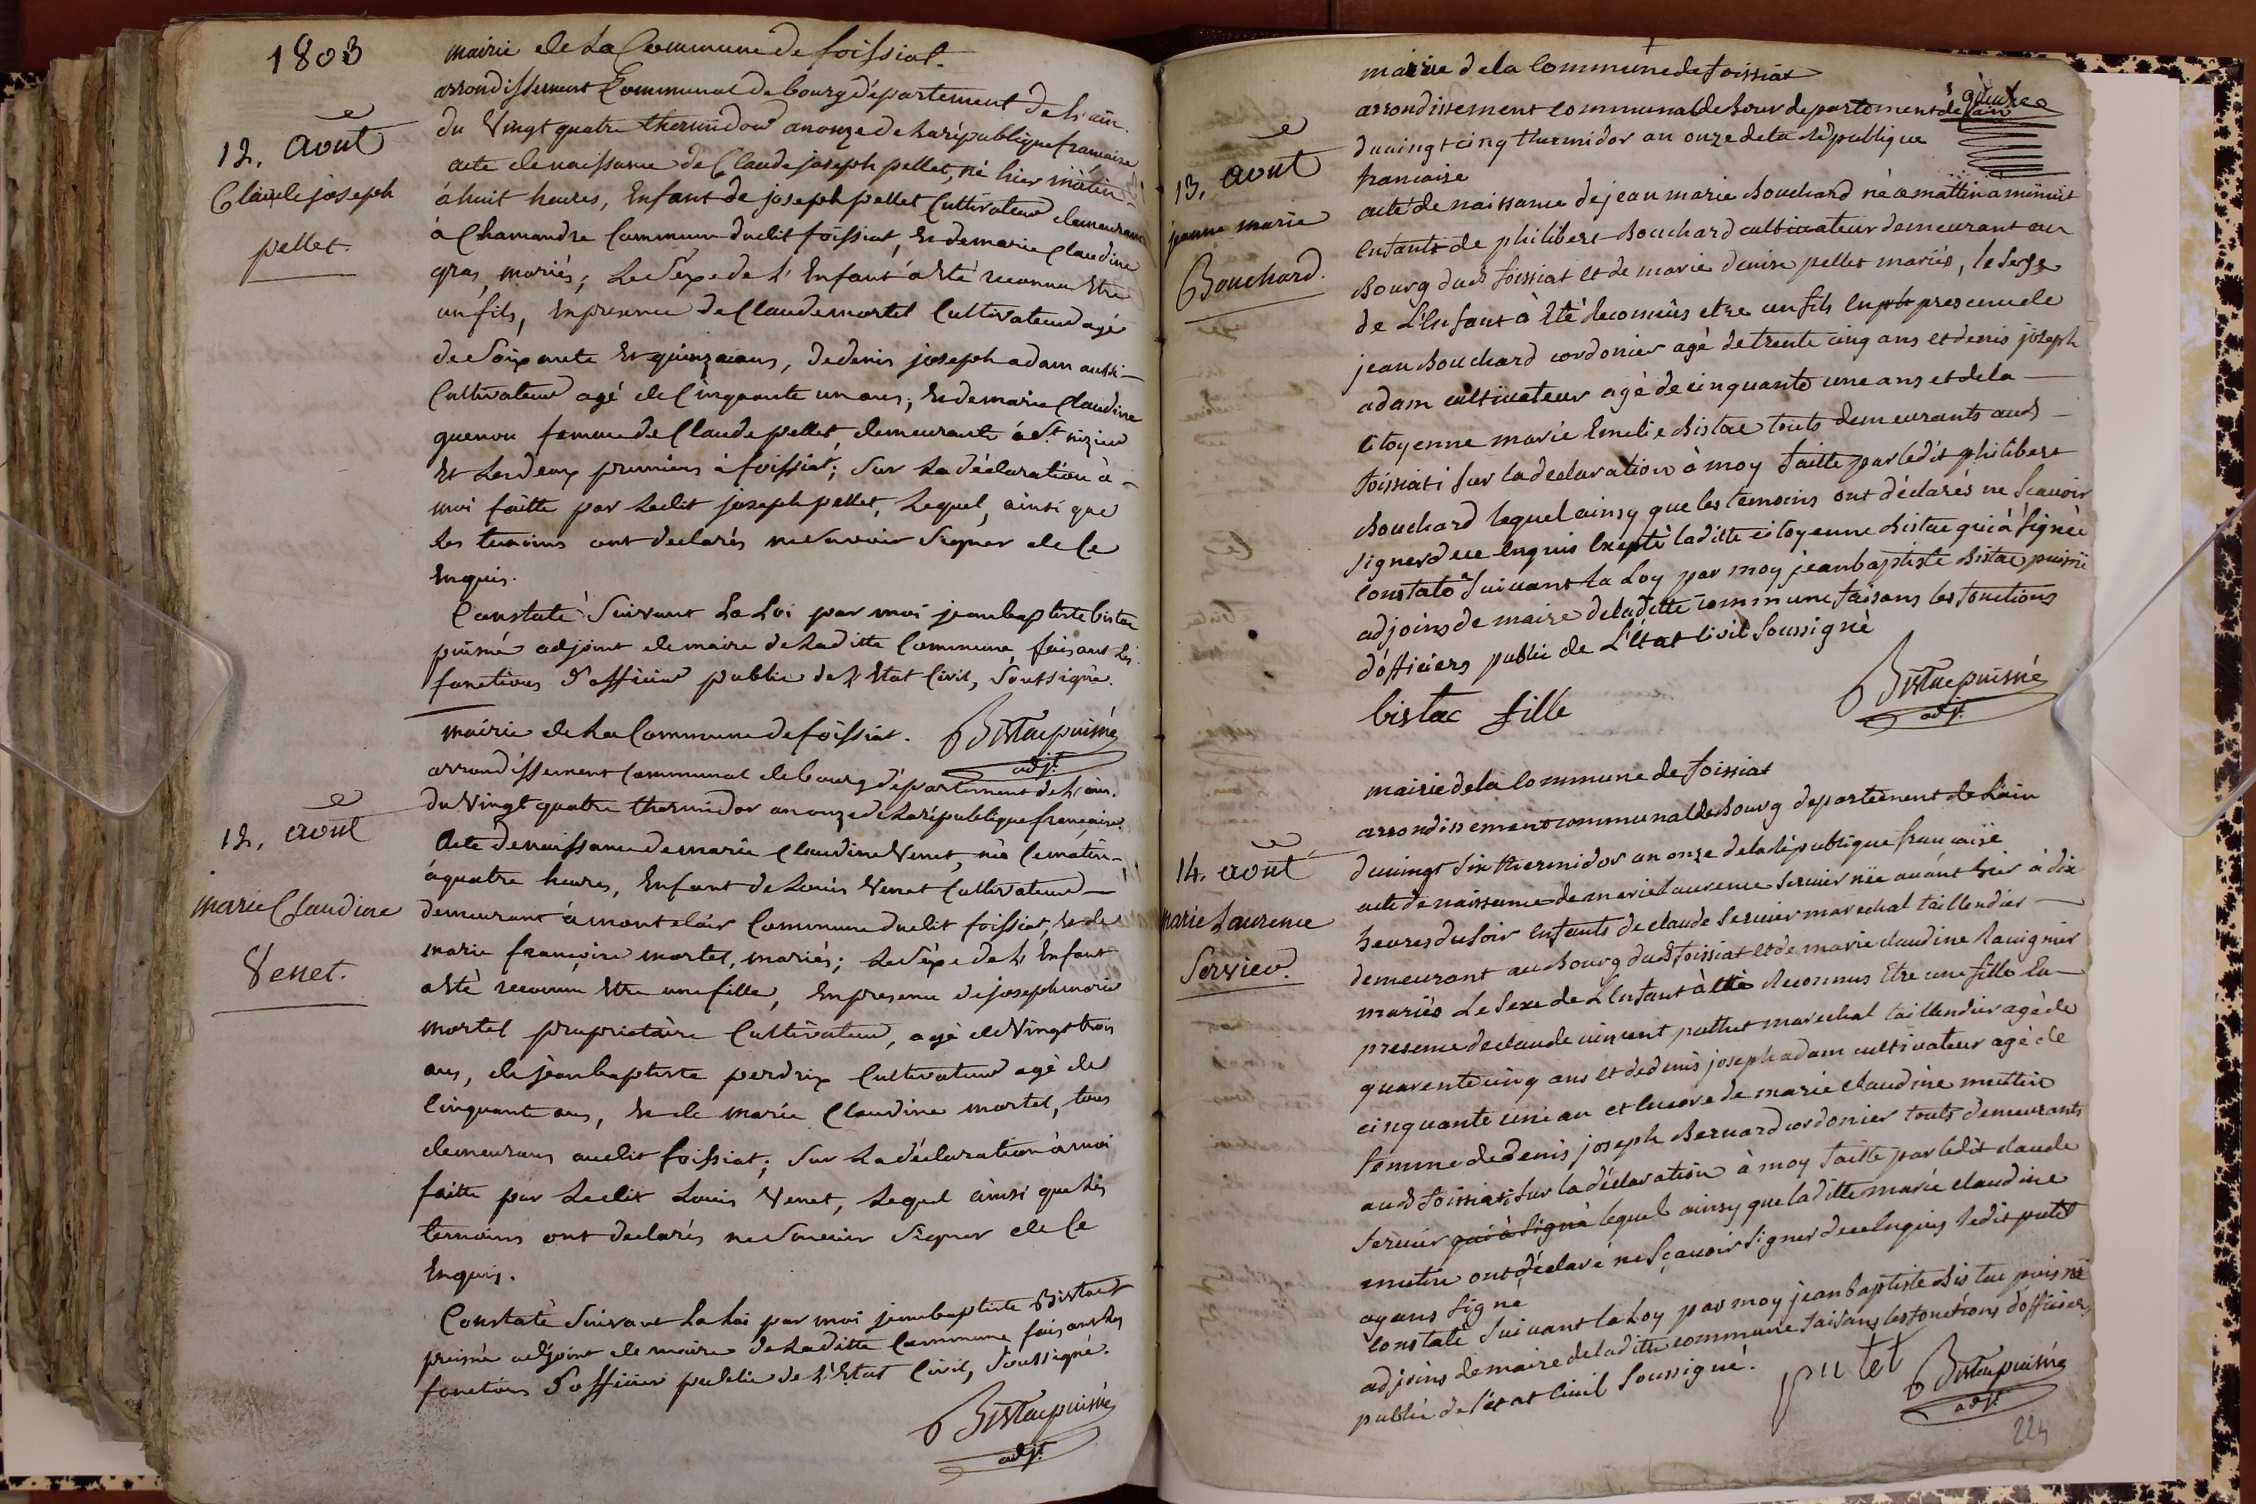 1803
mairie de La Commune de foissiat.
arrondissement Communal de bourg département de L'ain.
du Vingt quatre thermidor an onze de La république francaise
12. août
Claude joseph
pellet.
acte de naissance de Claude joseph pellet, né hier matin
à huit heures, Enfant de joseph pellet Cultivateur demeurant
à Chamandre Commune dudit foissiat, Et de marie Claudine
gras, mariés; Le Sexe de L'Enfant à Eté reconnu Etre
un fils, En presence de Claude mortel Cultivateur agé
de Soixante Et quinze ans, de denis joseph adam aussi
Cultivateur agé de Cinquante un ans, Et de marie Claudine
guenou femme de Claude pellet, demeurante à St. nizier
Et Les deux premiers à foissiat; Sur La déclaration à
moi faitte par Ledit joseph pellet, Lequel, ainsi que
les temoins ont declarés ne Savoir Signer de Ce
Enquis.
Constaté Suivant La Loi par moi jean baptiste bistac
puisné adjoint de maire de Laditte Commune, faisant Les
fonctions d'officier public de L'Etat Civil, Soussigné.
Bistac puisné
adjt.
mairie de La Commune de foissiat.
arrondissement Communal de bourg département de L'ain.
du Vingt quatre thermidor an onze de La république française.
12. août
marie Claudine
Venet.
Acte de naissance de marie Claudine Venet, née Ce matin
à quatre heures, Enfant de Louis Venet Cultivateur
demeurant à montclair Commune dudit foissiat, Et de
marie françoise mortel, mariés; Le Sexe de L'Enfant
a Eté reconnu Etre une fille, En presence de joseph marie
mortel proprietaire Cultivateur, agé de Vingt trois
ans, de jean baptiste perdrix Cultivateur agé de
Cinquante ans, Et de marie Claudine mortel, tous
demeurans audit foissiat; Sur La déclaration à moi
faitte par Ledit Louis Venet, Lequel ainsi que Les
temoins ont declarés ne Savoir Signer de Ce
Enquis.
Constaté Suivant La Loi par moi jean baptiste Bistac
puisné adjoint de maire de Laditte Commune faisant Les
fonctions d'officier public de L'Etat Civil, Soussigné.
Bistac puisné
adjt.
mairie de la Commune de foissiat
arrondissement communal de bour departement de l'ain
du vingt cinq thermidor an onze de la Republique
francaise
13. août
jeanne marie
Bouchard.
acte de naissance de jean marie Bouchard né ce mattin à minuit
enfants de philibert Bouchard cultivateur demeurant au
Bourg dud foissiat et de marie denise pellet mariés, le sexe
de L'Enfant à Eté Reconnüs etre un fils en presence de
jean Bouchard cordonier agé de trente cinq ans et denis joseph
adam cultivateur agé de cinquante une ans et de la
citoyenne marie Emelie Bistac touts demeurants aud
foissiat; sur la declaration à moy faitte par ledit philibert
Bouchard lequel ainsy que les temoins ont déclarés ne Scavoir
signer de ce enquis Excepté laditte citoyenne Bistac qui à signée
Constaté Suivant la Loy par moy jean baptiste Bistac puisné
adjoins de maire de laditte commune faisans les fonctions
d'officiers public de L'état Civil Soussigné
bistac fille
Bistac puisné
adjt.
mairie de la Commune de foissiat
arrondissement communal de Bourg departement de L'ain
du vingt six thermidor an onze de la République francaise
14. août
marie Laurence
Servier.
acte de naissance de marie Laurence Servier née avant hier à dix
heures du soir enfants de claude Servier marechal taillendier
demeurant au Bourg dud foissiat et de marie claudine Ravignier
mariés Le Sexe de L'Enfant à été Reconnus Etre une fille En
presence de claude vincent puthet marechal taillendier agé de
quarente cinq ans et de denis joseph adam cultivateur agé de
cinquante une an et encore de marie claudine mestin
femme de denis joseph Bernard cordonier touts demeurants
aud foissiat; Sur la déclaration à moy faitte par ledit claude
Servier qui à signé lequel ainsy que laditte marie claudine
mestin ont déclaré ne Sçavoir Signer de ce Enquis ledit putet
ayans Signé
Constaté Suivant la Loy par moy jean baptiste Bistac puisné
adjoins de maire de laditte commune faisans les fonctions d'officiers
public de l'état Civil Soussigné.
putet
Bistac puisné
adjt.
224